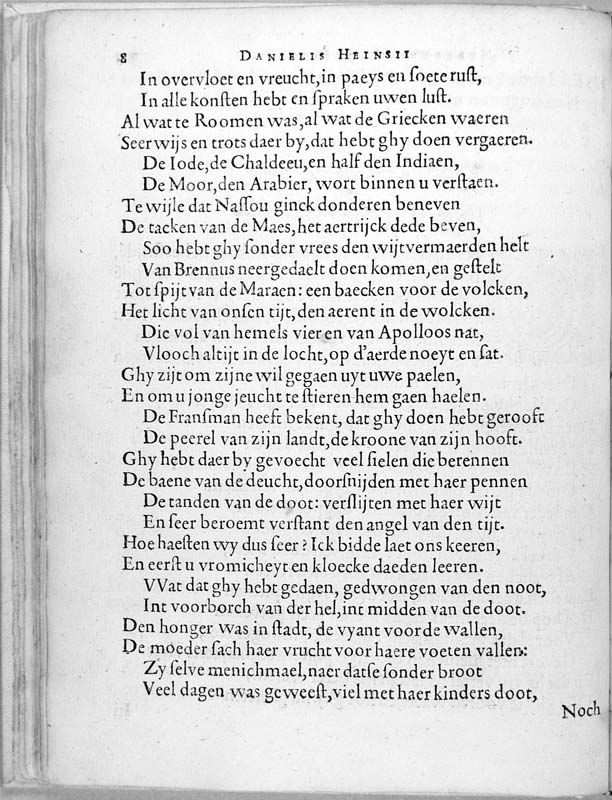 8 DANIELIS HEINSII
In overvloet en vreucht, in paeys en ſoete ruſt,
In alle konſten hebt en ſpraken uwen luſt.
Al wat te Roomen was, al wat de Griecken waeren
Seer wijs en trots daer by, dat hebt ghy doen vergaeren.
De Iode, de Chaldeeu, en half den Indiaen,
De Moor, den Arabier, wort binnen u verſtaen.
Te wijle dat Naſſou ginck donderen beneven
De tacken van de Maes, het aertrijck dede beven,
Soo hebt ghy ſonder vrees den wijtvermaerden helt
Van Brennus neergedaelt doen komen, en geſtelt
Tot ſpijt van de Maraen: een baecken voor de volcken,
Het licht van onſen tijt, den aerent in de wolcken.
Die vol van hemels vier en van Apolloos nat,
Vlooch altijt in de locht, op d'aerde noeyt en ſat.
Ghy zijt om zijne wil gegaen uyt uwe paelen,
En om u jonge jeucht te ſtieren hem gaen haelen.
De Franſman heeft bekent, dat ghy doen hebt gerooft
De peerel van zijn landt, de kroone van zijn hooft.
Ghy hebt daer by gevoecht veel ſielen die berennen
De baene van de deucht, doorſnijden met haer pennen
De tanden van de doot: verſlijten met haer wijt
En ſeer beroemt verſtant den angel van den tijt.
Hoe haeſten wy dus ſeer? Ick bidde laet ons keeren,
En eerſt u vromicheyt en kloecke daeden leeren.
VVat dat ghy hebt gedaen, gedwongen van den noot,
Int voorborch van der hel, int midden van de doot.
Den honger was in ſtadt, de vyant voor de wallen,
De moeder ſach haer vrucht voor haere voeten vallen:
Zy ſelve menichmael, naer datſe ſonder broot
Veel dagen was geweeſt, viel met haer kinders doot,
Noch